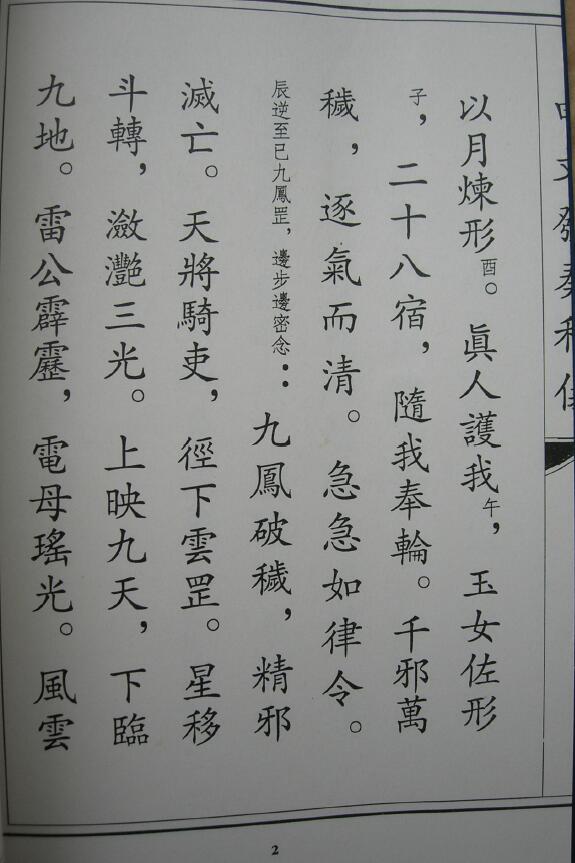 以月煉形酉。眞人護我午，玉女佐形
子，二十八宿，隨我奉輪。千邪萬
穢，逐氣而清。急急如律令。
辰逆至巳九鳳罡，邊步邊密念：九鳳破穢，精邪
滅亡。天將騎吏，徑下雲罡。星移
斗轉，瀲灔三光。上映九天，下臨
九地。雷公霹靂，電母瑤光。風雲
2